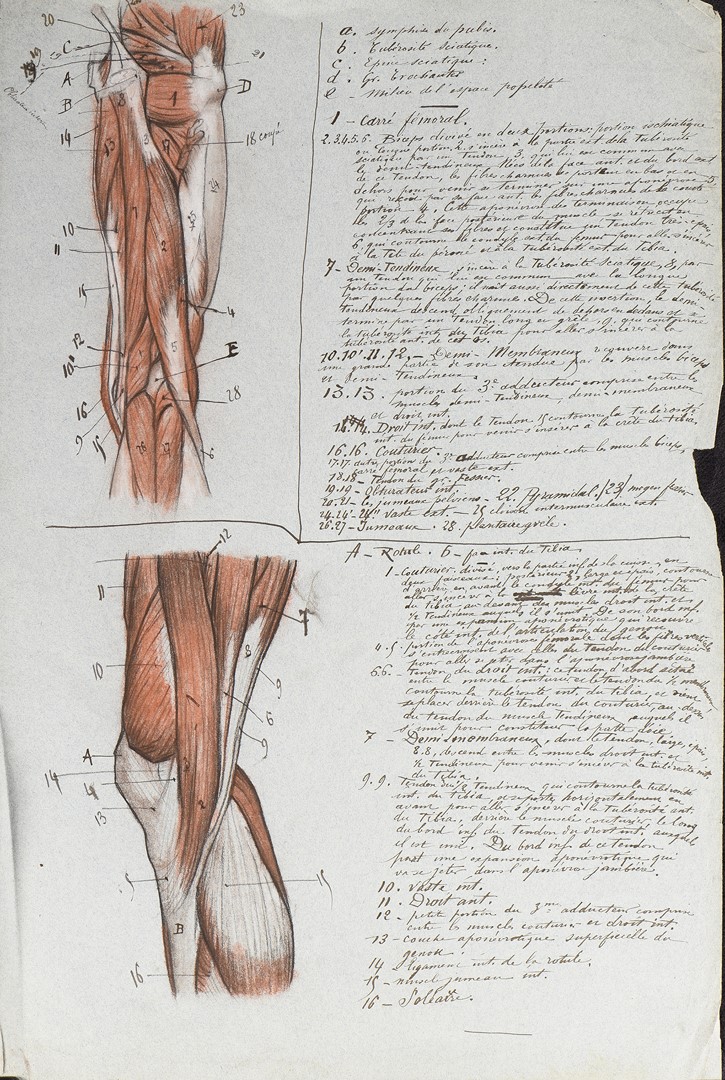 a. symphise du pubis.
b. Tubérosité sciatique.
c. Epine sciatique:
d. Gr. Trochanter
e - milieu de l'espace popelité
1 - Carré fémoral.
2.3.4.5.6. Biceps divisé en deux portions: portion ischiatique
ou longue portion. 2. s'insère à la partie est. de la tubérosité
sciatique par un tendon 3. qui lui est commun avec
le demi-tendineux. Nées de la face ant. et du bord ext.
de ce tendon, les fibres charnues se portent en bas et en
dehors pour venir se terminer sur une aponévrose 5
qui reçoit par sa face ant. les fibres charnues de la courte
portion - 4. Cette aponévrose de terminaison occupe
2/3 de la face postérieure du muscle se rétrécit en
concentrant ses fibres et constitue un tendon très-épais,
6, qui contourne le condyle ext. du fémur pour aller s'insérer
à la Tête du péroné et à la tubérosité est. du Tibia.
7 - Demi-Tendineux s'insère à la Tubérosité Sciatique, 8, par
un tendon qui lui est commun avec la longue
portion du biceps; il naît aussi directement de cette tubérosité
par quelques fibres charnues. De cette insertion, le demi-
Tendineux descend obliquement de dehors en dedans et se
termine par un tendon long et grêle, 9, qui contourne
la tubérosité int. du Tibia pour aller s'insérer à la
tubérosité ant. de cet os.
10.10'.11.12, - Demi-Membraneux recouvert dans
une grande partie de son étendue par les muscles biceps
et Demi-Tendineux.
13.13. portion du 3e adducteur comprise entre les
muscles demi-Tendineux, demi-membraneux
et droit int.
14.14. Droit int. dont le Tendon 15 contourne la tubérosité
int. du fémur pour venir s'insérer à la crête du Tibia.
16.16. Couturier.
17.17. autre portion du 3e adducteur comprise entre les muscles biceps,
carré fémoral et vaste ext.
18.18 - Tendon du gr. fessier.
19.19 - Obturateur int.
20.21 - les jumeaux pelviens - 22. Pyramidal. /23/ moyen fessier
24.24'.24" vaste ext. - 25 cloison intermusculaire ext.
26.27 - Jumeaux. 28. plantaire grêle.
A - Rotule. B - face int. du Tibia
1 - Couturier divisé, vers la partie inf. de la cuisse, en
deux faisceaux; postérieur, 3, large et épais, contourne
d'arrière en avant, le condyle int. du fémur pour
aller s'insérer à la lèvre int. de la crête
du Tibia au-devant des muscles droit int. et
1/2 Tendineux auxquels il s'unit. De son bord inf.
part une expansion aponévrotique qui recouvre
le côté int. de l'articulation du genou.
4.5. portion de l'aponévrose fémorale dont les fibres verticales
s'entrecroisent avec celles du tendon du couturier
pour aller se jeter dans l'aponévrose jambière
6.6. - Tendon du droit int: ce tendon d'abord situé
entre le muscle couturier et le tendon du 1/2 membraneux
contourne la tubérosité int. du tibia, et vient
se placer derrière le tendon du couturier, au-dessus
du tendon du muscle Tendineux auquel il
s'unit pour constituer la patte d'oie.
7 - Demi-membraneux, dont le tendon, large, épais,
8.8, descend entre les muscles droit int. et
1/2 Tendineux pour venir s'insérer à la tubérosité int.
du Tibia.
9.9. Tendon du 1/2 Tendineux qui contourne la tubérosité
int. du tibia et se porte horizontalement en
avant pour aller s'insérer à la Tubérosité ant.
du Tibia, derrière le muscle couturier, le long
du bord inf. du tendon du droit int. auquel
il est uni. Du bord inf. de ce tendon
part une expansion aponévrotique qui
va se jeter dans l'aponévrose jambière.
10. Vaste int.
11. Droit ant.
12 - petite portion du 3me adducteur comprise
entre les muscles couturier et droit int.
13 - couche aponévrotique superficielle du
genou.
14 ligament int. de la rotule.
15 - muscle jumeau int.
16 - Soléaire.
20
23
19
C
21
A
D
B
8
1
14
13
3
17
18 coupé
24
7
10
2
25
11
15
4
12
5
E
10'
28
16
9
15
26
27
6
12
11
7
8
10
9
1
6
A
9
14
3
4
13
2
5
15
B
16